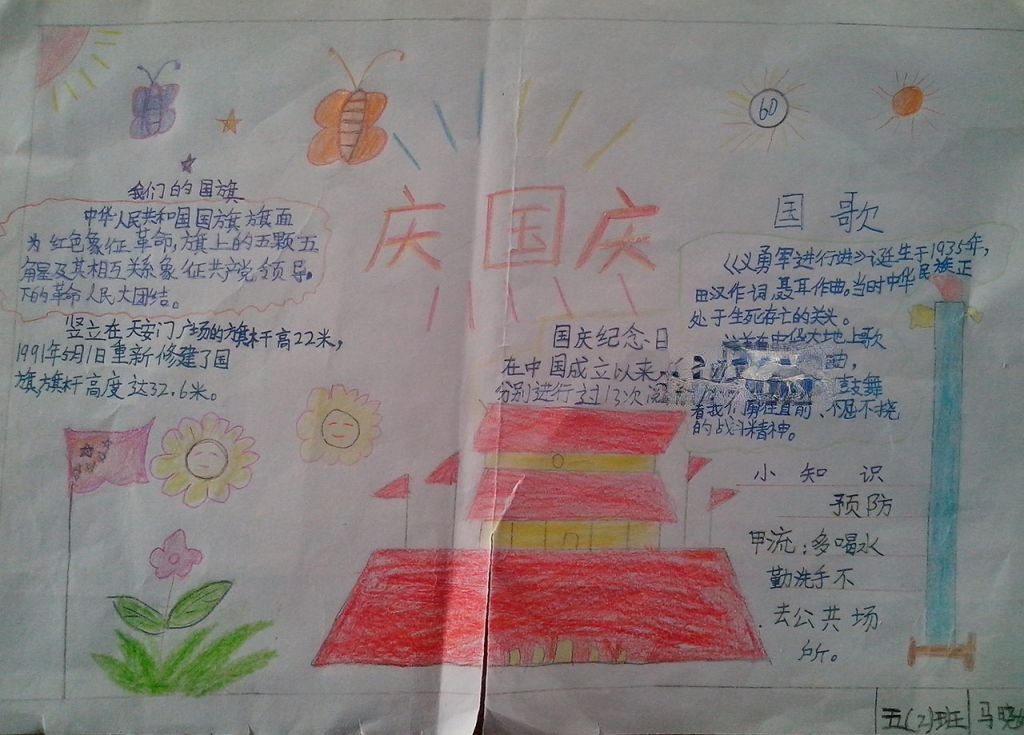 我们的国旗
中华人民共和国国旗旗面
为红色象征革命,旗上的五颗五
角星及其相互关系象征共产党领导。
下的革命人民大团结。
竖立在天安门广场的旗杆高22米,
1991年5月1日重新修建了国
旗,旗杆高度达32.6米。
庆国庆
国庆纪念日
在中国成立以来
分别进行过13次阅
60
国歌
《义勇军进行进》诞生于1935年,
田汉作词,聂耳作曲。当时中华民族正
处于生死存亡的关头。
中华大地上歌
曲,
鼓舞
着我们勇往直前、不屈不挠
的战斗精神。
小知识
预防
甲流:多喝水
勤洗手不
去公共场
所。
五(2)班
马晓